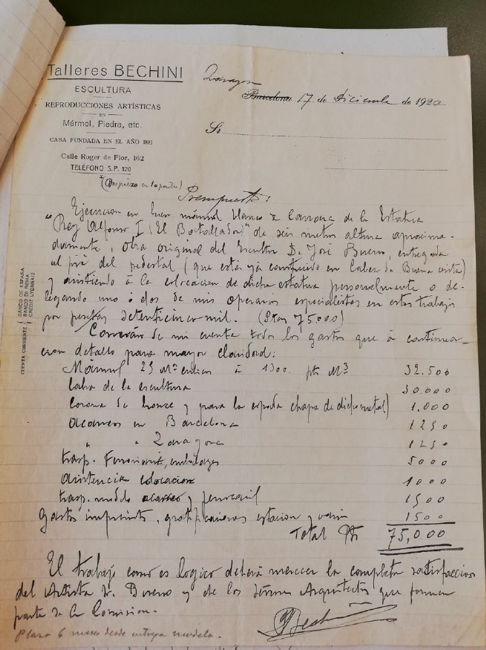 Talleres BECHINI
ESCULTURA
REPRODUCCIONES ARTÍSTICAS
EN
Mármol, Piedra, etc.
CASA FUNDADA EN EL AÑO
Calle Roger de Flor, 162
TELÉFONO S.P. 120
Zaragoza
Barcelona 17 de Diciembre de 1920
Sr.
Presupuesto:
Ejecucion en buen mármol blanco de Carrara de la Estatua
"Rey Alfonso I (El Batallador" de seis metros altura aproxima-
damente, obra original del Escultor D. José Bueno, entregada
al pié del pedestal (que esta ya construido en Cabezo de Buena vista)
y asistiendo á la colocacion de dicha estatua personalmente o de-
legando uno ó dos de mis operarios especialistas en estos trabajos
por pesetas setenta cinco mil. (Ptas 75.000)
Correrán de mi cuenta todos los gastos que á continua-
cion detallo para mayor claridad.
Mármol 25 M³ á 1300 pts M³ 32.500
Labra de la escultura 30.000
Corona de bronce y para la espada chapa de dicho metal) 1.000
acarreos en Barcelona 1250
" " Zaragoza 1250
trasp. Ferrocarril, embalages 5000
asistencia colocacion 1000
trasp. modelo acarreo y ferrocarril 1500
gastos imprevistos, estacion y 1500
Total Pts 75,000
El trabajo como es logico deberá merecer la completa satisfaccion
del Artista Sr. Bueno y de los Señores Arquitectos que forman
parte de la Comision.
Plazo 6 meses desde entrega modelo.